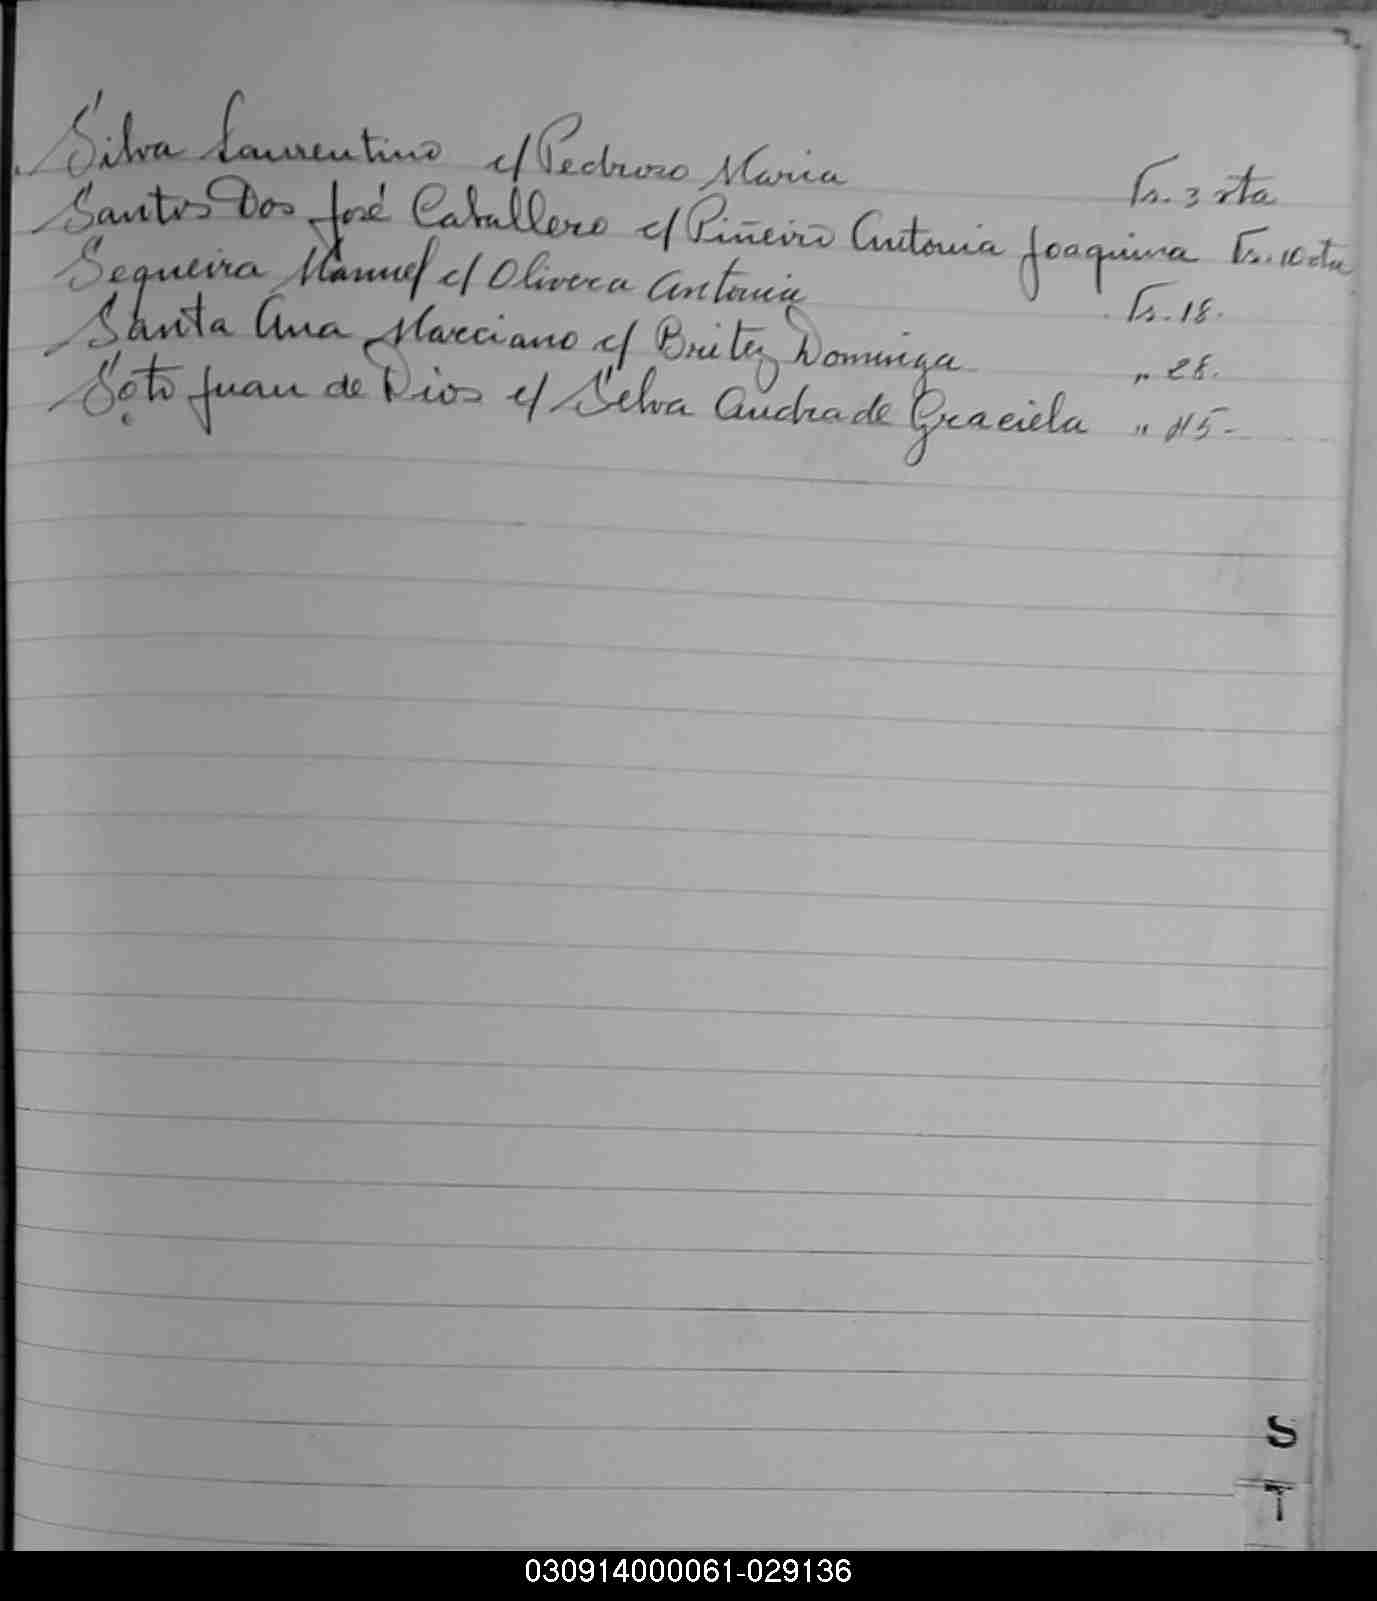 Silva Laurentino c/ Pedrozo Maria Fs. 3 vta
Santos Dos José Caballero c/ Piñeiro Antonia Joaquina Fs. 10 vta
Sequeira Manuel c/ Olivera Antonia Fs. 18.
Santa Ana Marciano c/ Britez Dominga " 28.
Soto Juan de Dios c/ Selva Andrade Graciela "
S
T
030914000061-029136